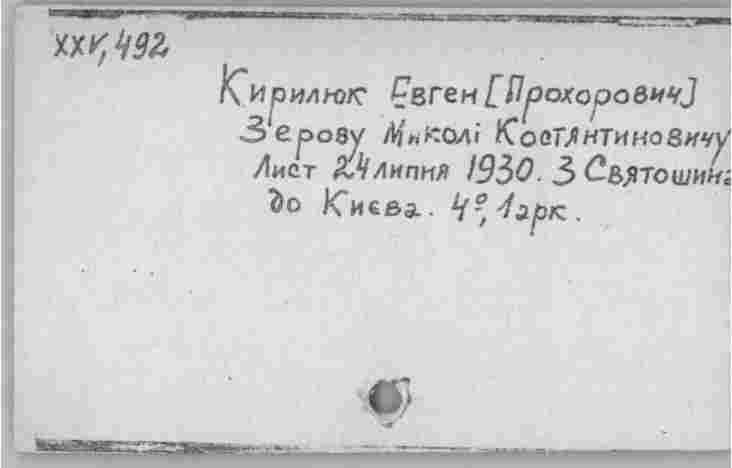 XXV, 492
Кирилюк Евген [Прохорович]
Зерову Миколі Костянтиновичу
Лист 24 липня 1930. З Святошина
до Києва. 4°, 1 арк.